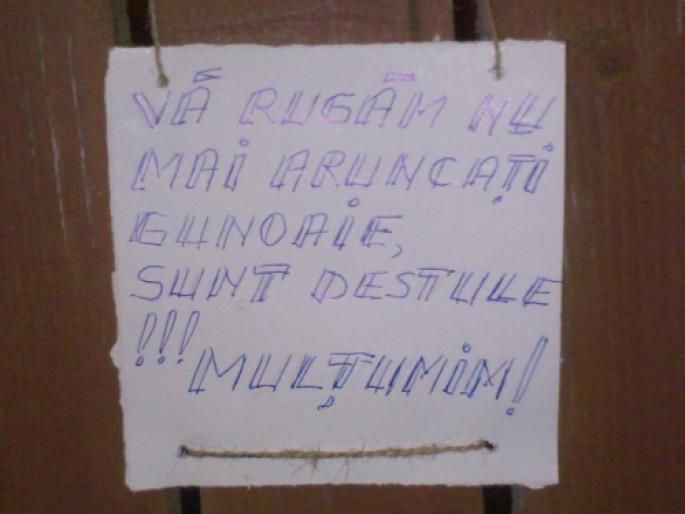 VĂ RUGĂM NU
MAI ARUNCAȚI
GUNOAIE,
SUNT DESTULE
!!! MULȚUMIM!